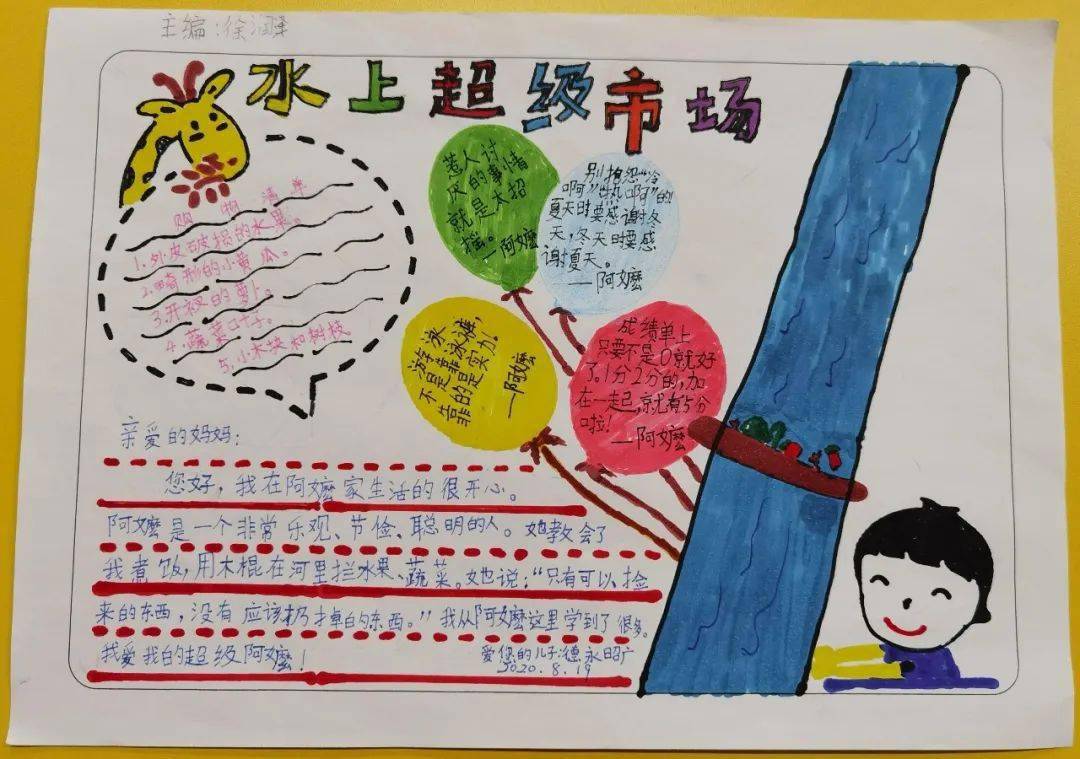 主编：徐润泽
水上超级市场
购物清单
1.外皮破损的水果。
2.畸形的小黄瓜。
3.开衩的萝卜。
4.蔬菜叶子。
5.小木块和树枝。
惹人讨
厌的事情
就是太招
摇。—阿嬷
别抱怨“冷
啊”“热啊”的!
夏天时要感谢冬
天，冬天时要感
谢夏天。
—阿嬷
游泳
不是靠泳裤，
靠的是实力!
—阿嬷
成绩单上
只要不是0就好
了。1分2分的，加
在一起，就有5分
啦!
—阿嬷
亲爱的妈妈：
您好，我在阿嬷家生活的很开心。
阿嬷是一个非常乐观、节俭、聪明的人。她教会了
我煮饭，用木棍在河里拦水果、蔬菜。她说：“只有可以捡
来的东西，没有应该扔掉的东西。”我从阿嬷这里学到了很多。
我爱我的超级阿嬷!
爱您的儿子：德永昭广
2020.8.19